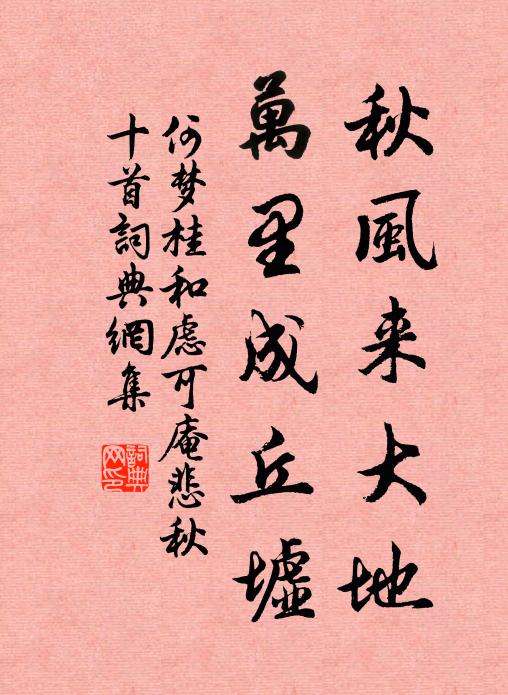 秋風来大地
萬里成丘墟
何梦桂和虑可庵悲秋
十首詞典網集
詞典
网印